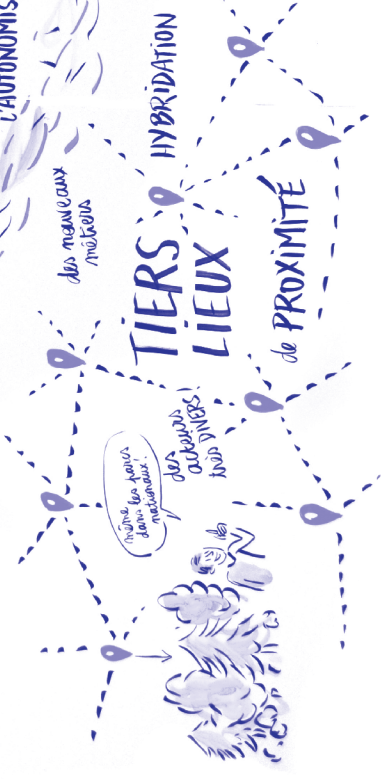 L'AUTONOMIS
HYBRIDATION
des nouveaux
métiers
TIERS
LIEUX
de PROXIMITÉ
des
acteurs
très DIVERS!
même
dans les parcs
nationaux!